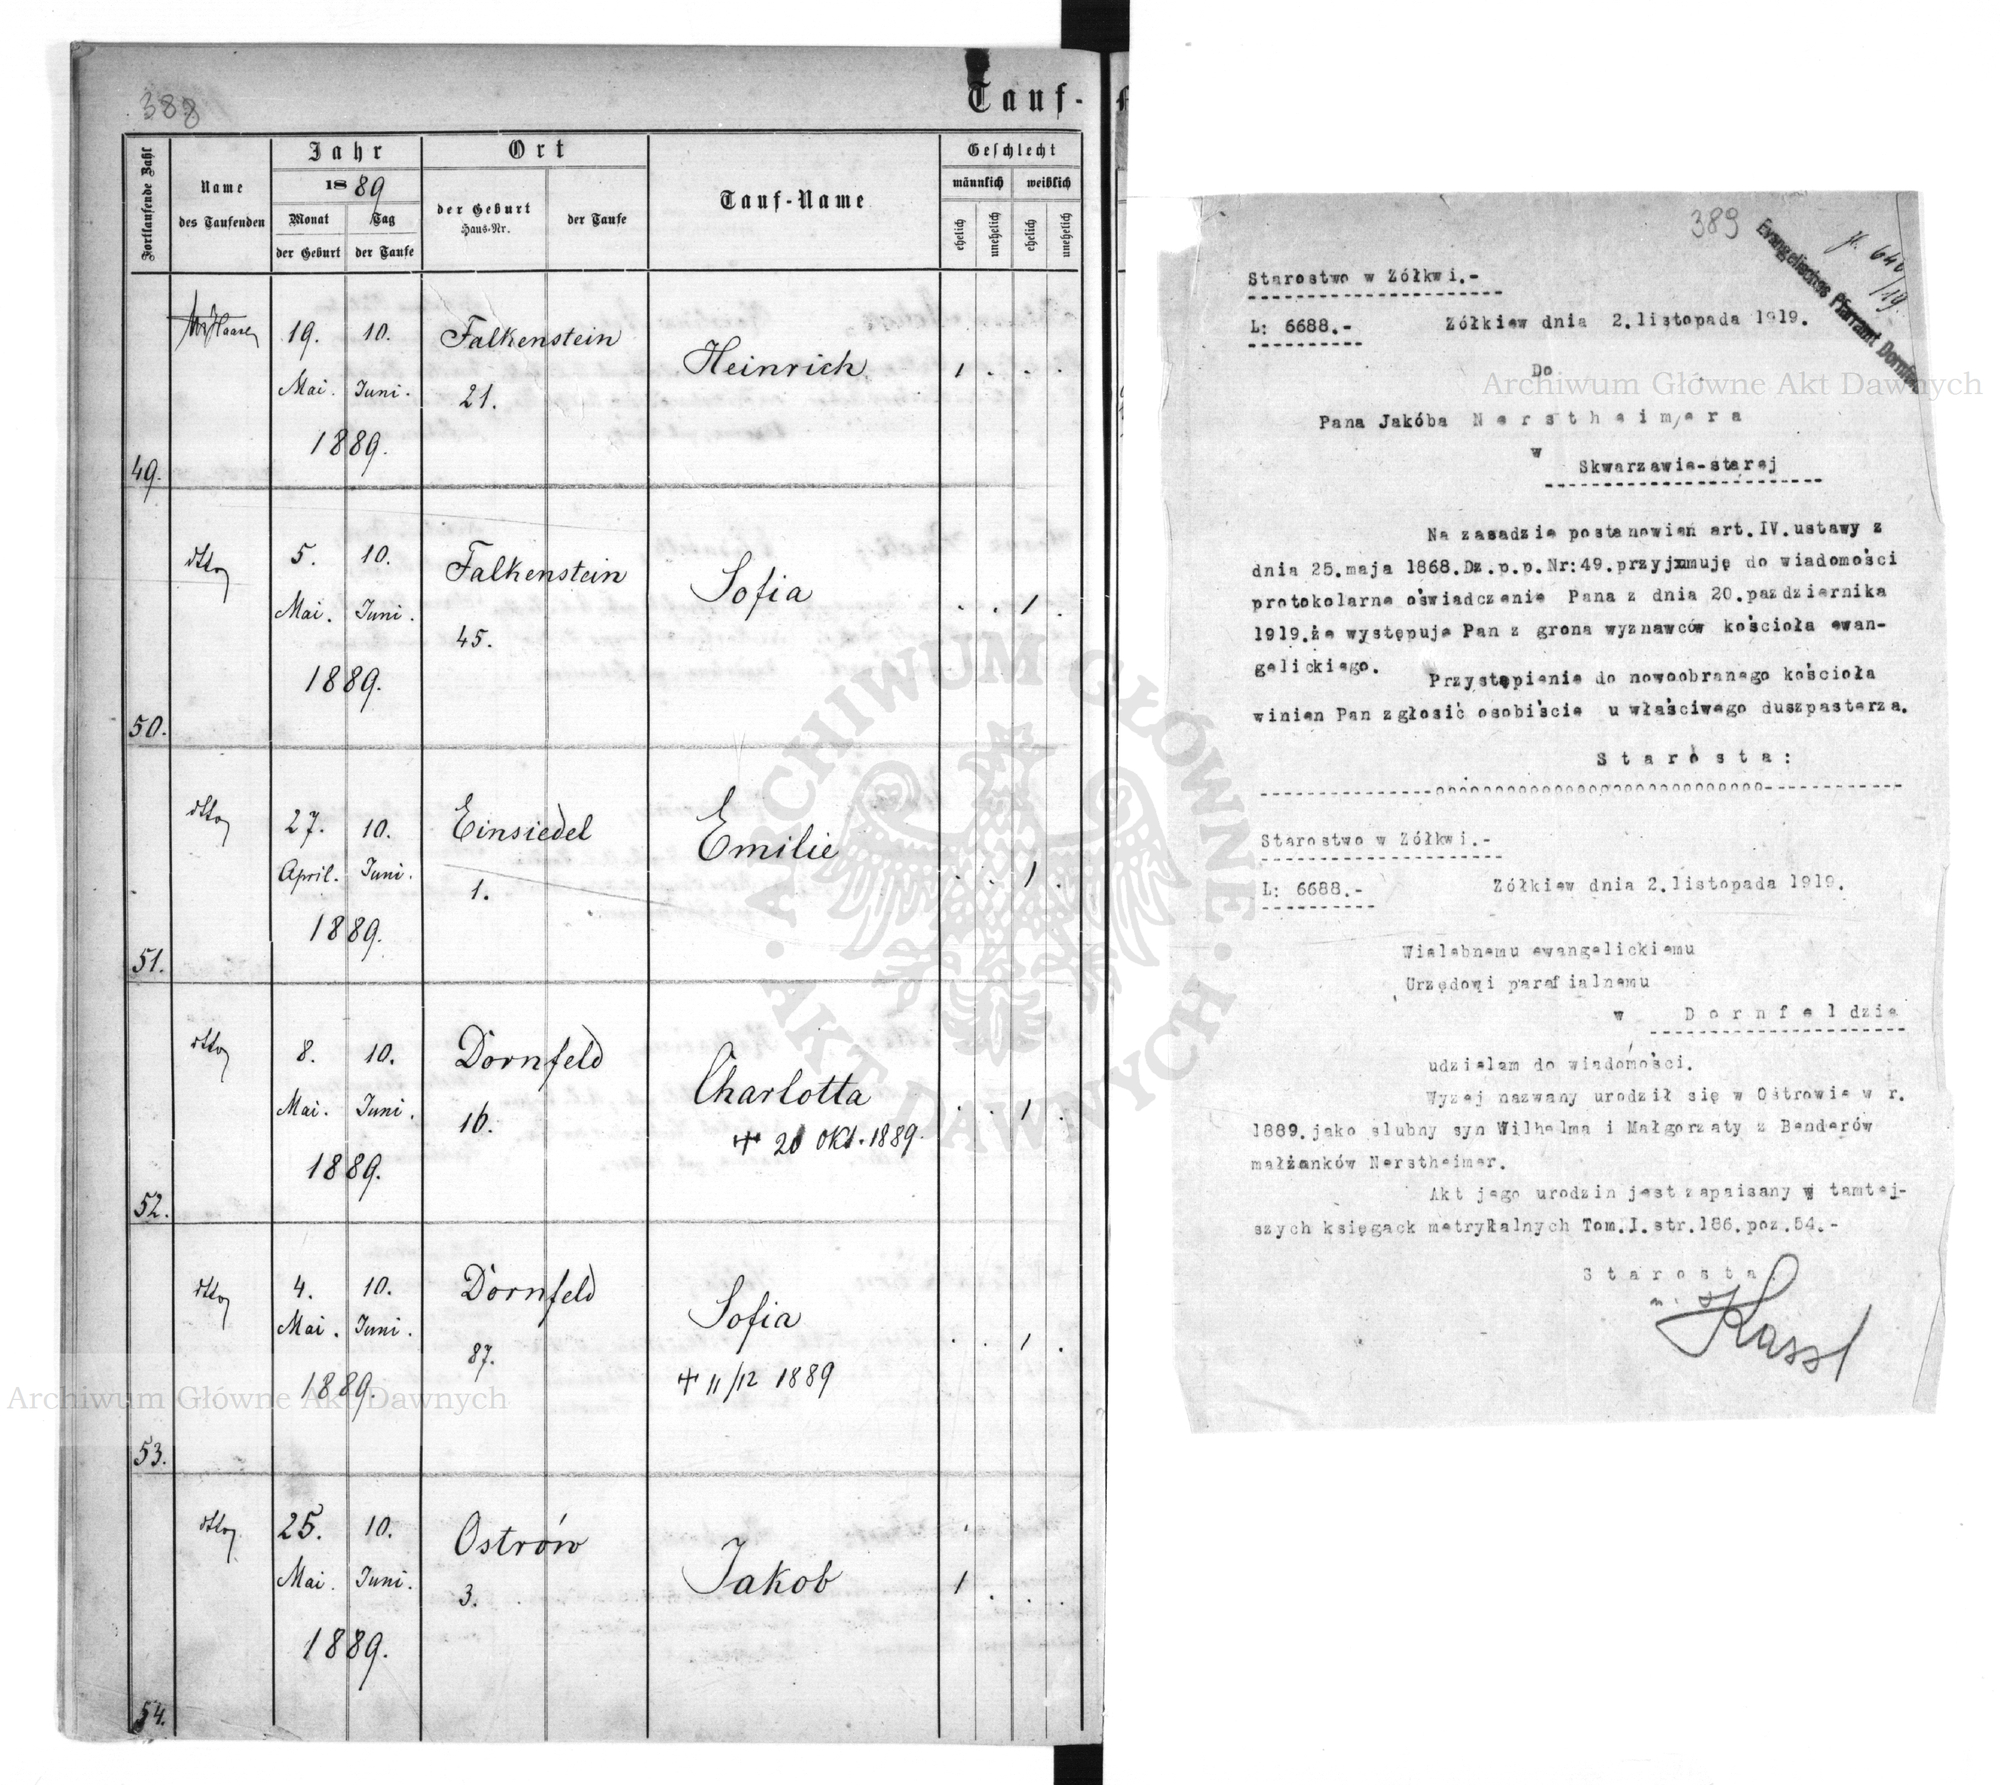 388
Tauf-
Fortlaufende Zahl
Name
des Taufenden
Jahr
1889
Monat
der Geburt
Tag
der Taufe
Ort
der Geburt
Haus-Nr.
der Taufe
Tauf-Name
Geschlecht
männlich
weiblich
ehelich
unehelich
ehelich
unehelich
19. 10. Falkenstein
Heinrich 1 . . .
Mai. Juni. 21.
1889.
49.
dtto 5. 10. Falkenstein
Sofia . . 1 .
Mai. Juni. 45.
1889.
50.
dtto 27. 10. Einsiedel
Emilie . . 1 .
April. Juni. 1.
1889.
51.
dtto 8. 10. Dornfeld
Charlotta . . 1 .
Mai. Juni. 16.
+ 20 Okt. 1889.
1889.
52.
dtto 4. 10. Dornfeld
Sofia . . 1 .
Mai. Juni. 87.
+ 11/12 1889
1889.
53.
dtto 25. 10. Ostrów
Jakob 1 . . .
Mai. Juni. 3.
1889.
54.
389
Evangelisches Pfarramt Dornfeld
Starostwo w Żółkwi.-
L: 6688.- Żółkiew dnia 2.listopada 1919.
Do
Pana Jakóba Nerstheimera
w
Skwarzawie-starej
Na zasadzie postanowień art.IV.ustawy z
dnia 25.maja 1868.Dz.p.p.Nr:49.przyjmuję do wiadomości
protokolarne oświadczenie Pana z dnia 20.października
1919.że występuje Pan z grona wyznawców kościoła ewan-
gelickiego.
Przystąpienie do nowoobranego kościoła
winien Pan zgłosić osobiście u właściwego duszpasterza.
Starosta:
Starostwo w Żółkwi.-
L: 6688.- Żółkiew dnia 2.listopada 1919.
Wielebnemu ewangelickiemu
Urzędowi parafialnemu
w Dornfeldzie
udzielam do wiadomości.
Wyzej nazwany urodził się w Ostrowie w r.
1889.jako slubny syn Wilhelma i Małgorzaty z Benderów
małżonków Nerstheimer.
Akt jego urodzin jest zapaisany w tamtej-
szych księgack metrykalnych Tom.I.str.186.poz.54.-
Starosta.
Archiwum Główne Akt Dawnych
Archiwum Główne Akt Dawnych
ARCHIWUM GŁÓWNE · AKT DAWNYCH ·